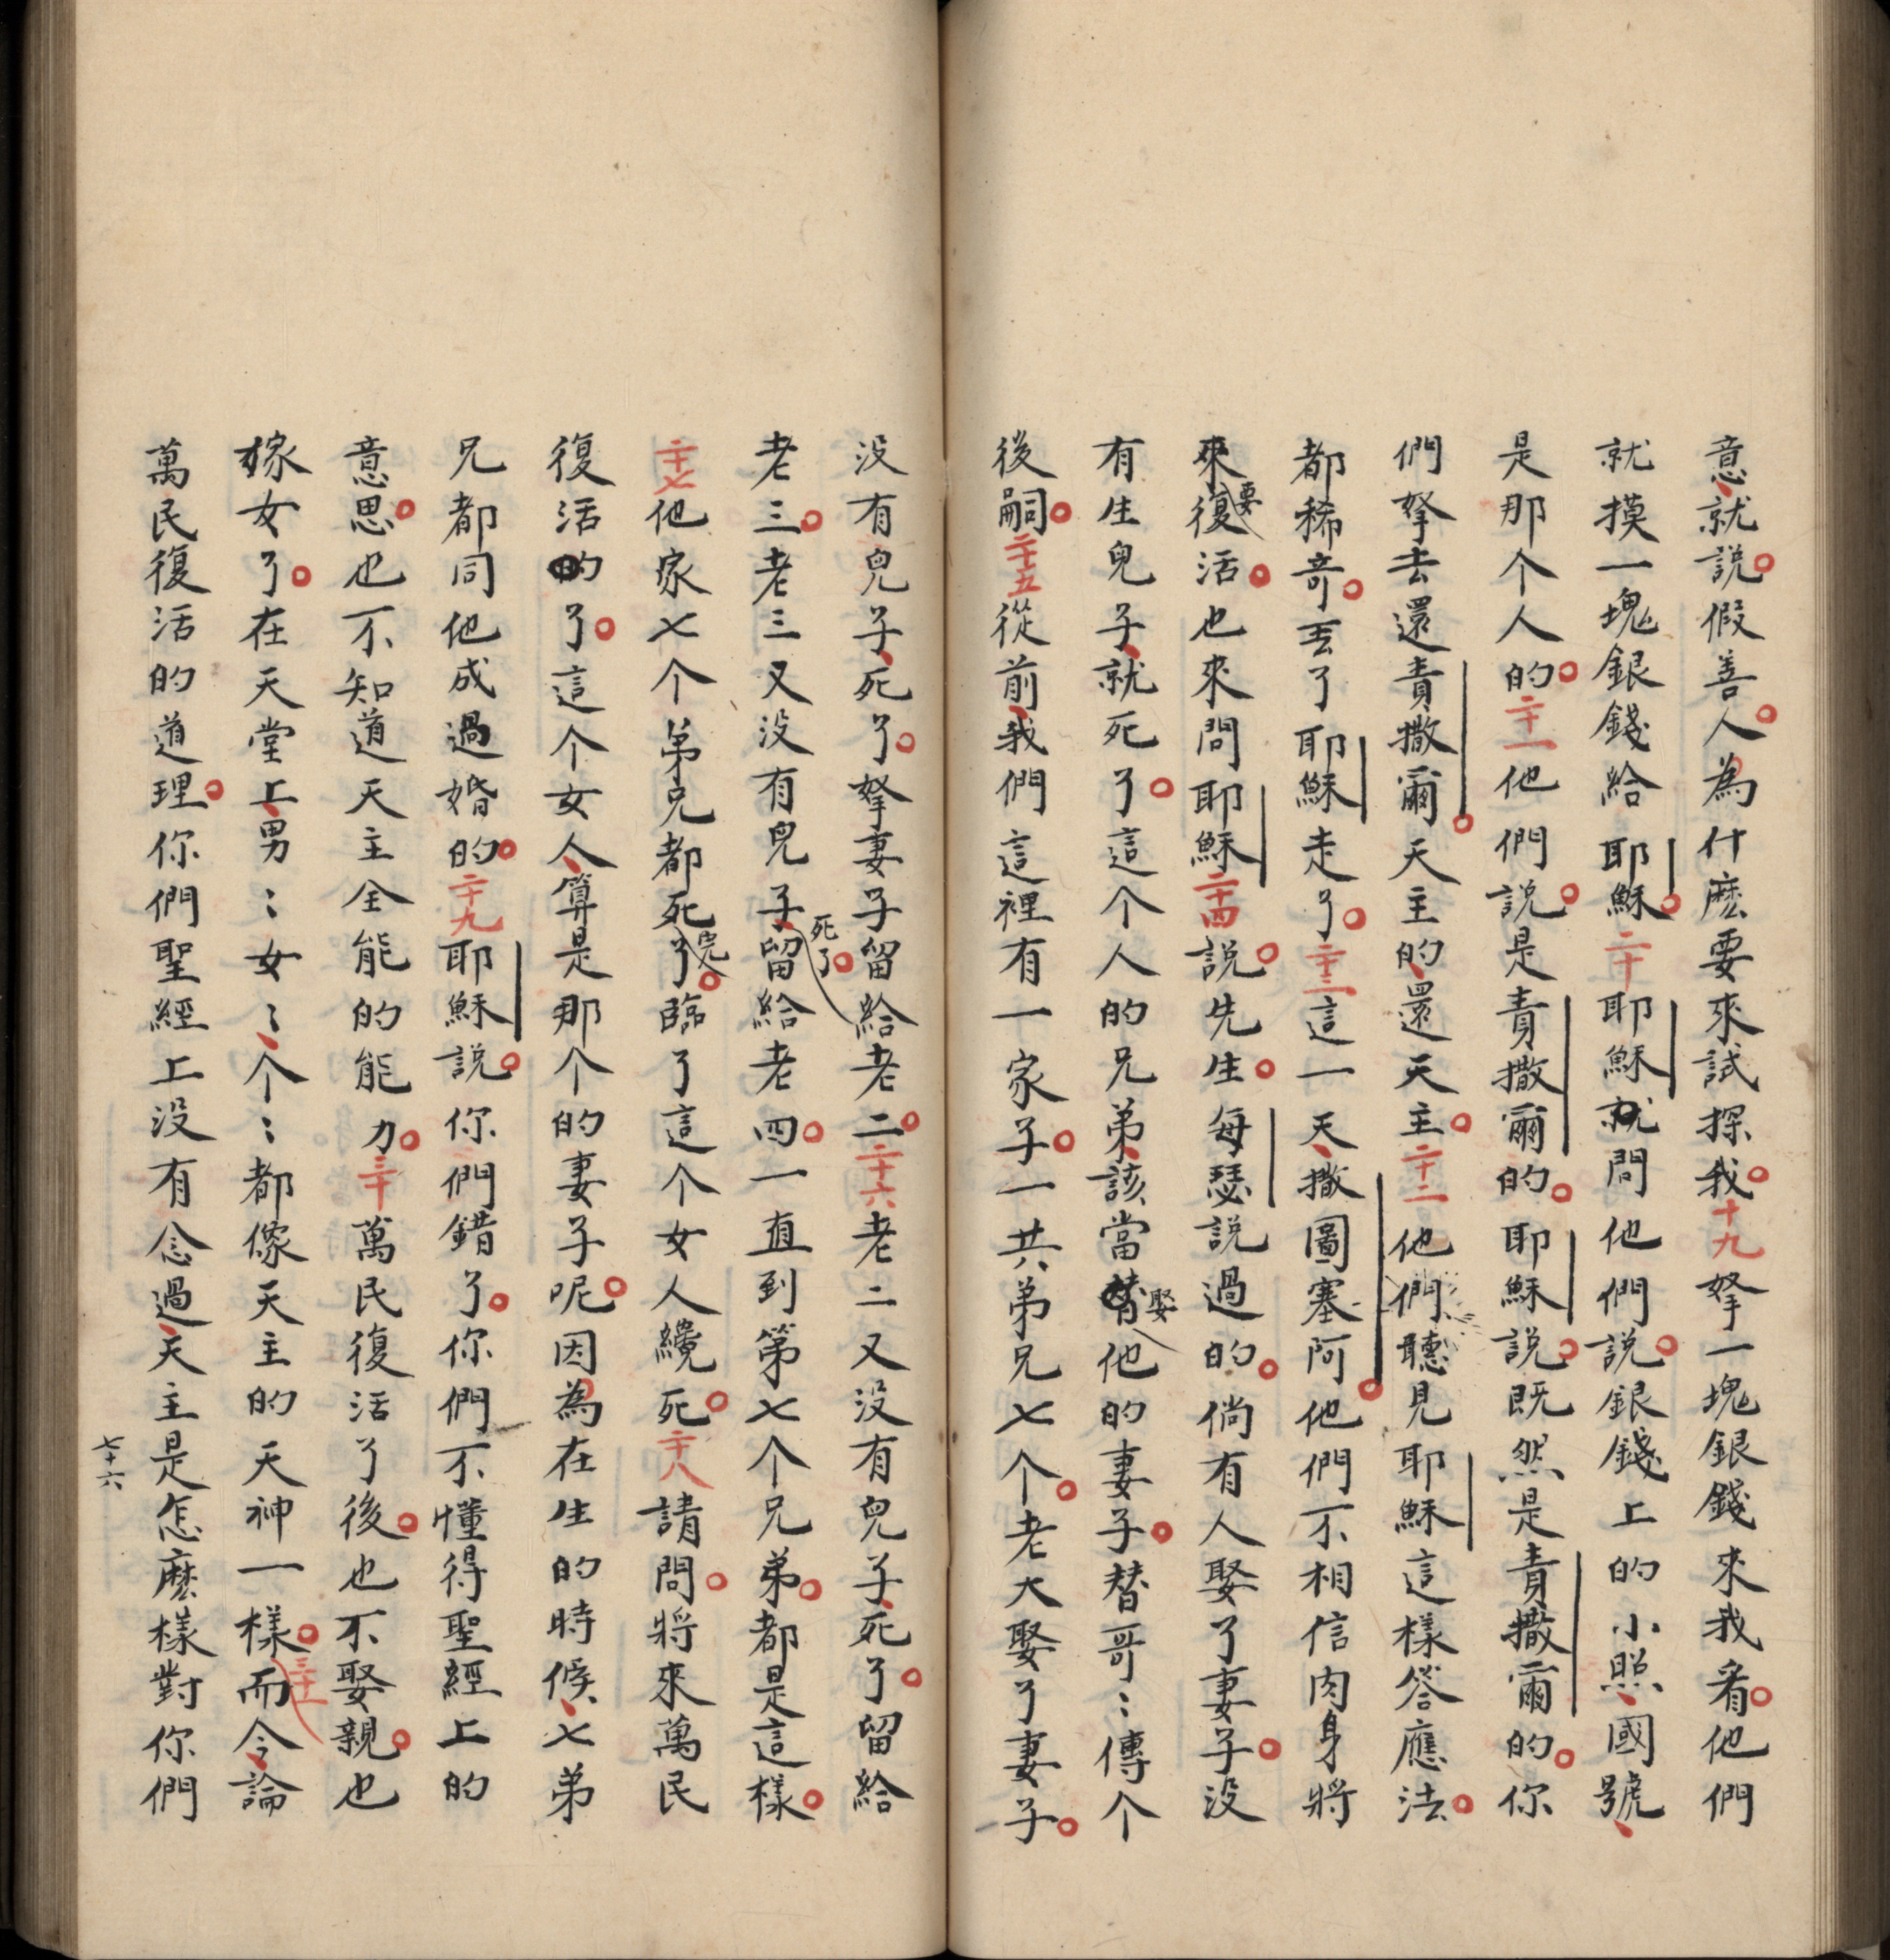 意、就説。假善人。為什麽要來試探我。十九拏一塊銀錢來我看。他們
就摸一塊銀錢給耶穌。二十耶穌就問他們説。銀錢上的小照、國號、
是那个人的。二十一他們説。是責撒爾的。耶穌説。既然是責撒爾的。你
們拏去還責撒爾。天主的、還天主。二十二他們聽見耶穌這樣答應法。
都稀奇。丟了耶穌走了。二十三這一天、撒圖塞阿。他們不相信肉身將
來要復活。也來問耶穌。二十四説。先生。每瑟説過的。倘有人娶了妻子。没
有生兒子、就死了。這个人的兄弟、該當娶他的妻子。替哥〻傳个
後嗣。二十五從前、我們這裡有一家子。一共弟兄七个。老大娶了妻子。
没有兒子、死了。拏妻子留給老二。二十六老二又没有兒子、死了。留給
老三。老三又没有兒子、死了。留給老四。一直到第七个兄弟。都是這樣。
二十七他家七个弟兄都死完了。臨了這个女人纔死。二十八請問。將來萬民
復活了。這个女人、算是那个的妻子呢。因為在生的時候、七弟
兄都同他成過婚的。二十九耶穌説。你們錯了。你們不懂得聖經上的
意思。也不知道天主全能的能力。三十萬民復活了後。也不娶親。也
嫁女了。在天堂上、男〻女〻、个〻都像天主的天神一樣。三十一而今、論
萬民復活的道理。你們聖經上没有念過、天主是怎麽樣對你們
七十六